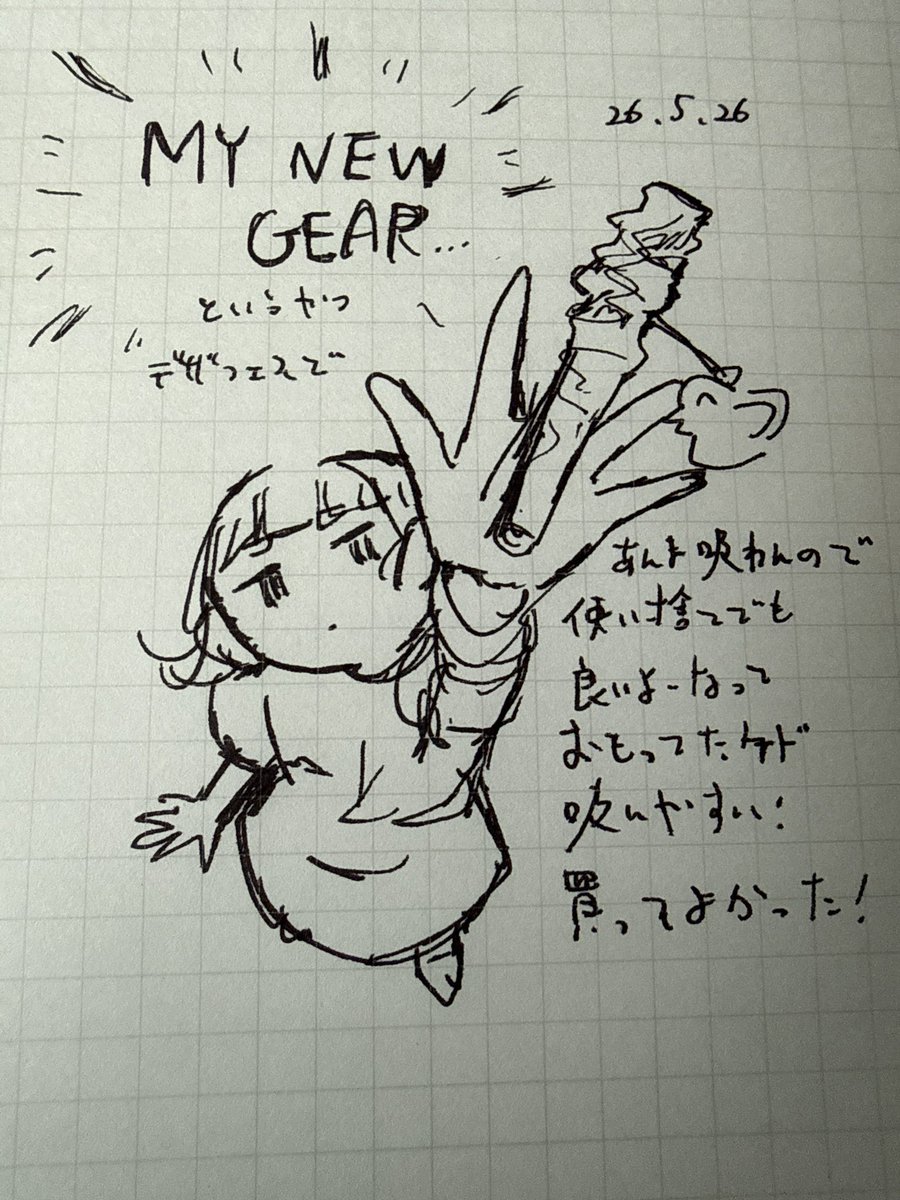 26.5.26
MY NEW
GEAR...
というやつ
デザフェスで
あんま吸わんので
使い捨てでも
良いよーなって
おもってたケド
吸いやすい!
買ってよかった!